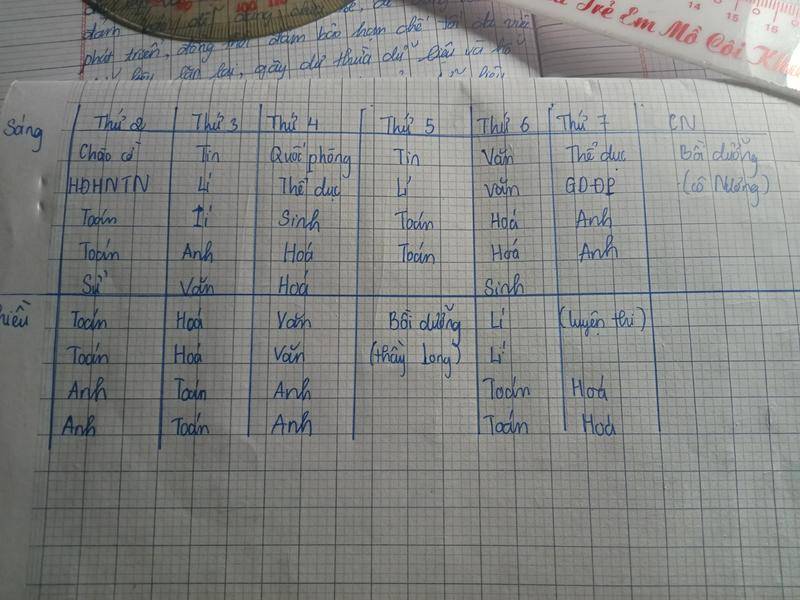 phát triển, đồng thời đảm bảo hạn chế tối đa việc
Trẻ Em Mồ Côi
14 15 16
Sáng Thứ 2 Thứ 3 Thứ 4 Thứ 5 Thứ 6 Thứ 7 CN
Chào cờ Tin Quốc phòng Tin Văn Thể dục Bồi dưỡng
HĐHNTN Lí Thể dục Lí Văn GDĐP (cô Nương)
Toán Lí Sinh Toán Hoá Anh
Toán Anh Hoá Toán Hoá Anh
Sử Văn Hoá Sinh
Toán Hoá Văn Bồi dưỡng Lí (luyện thi)
Toán Hoá Văn (thầy Long) Lí
Anh Toán Anh Toán Hoá
Anh Toán Anh Toán Hoá